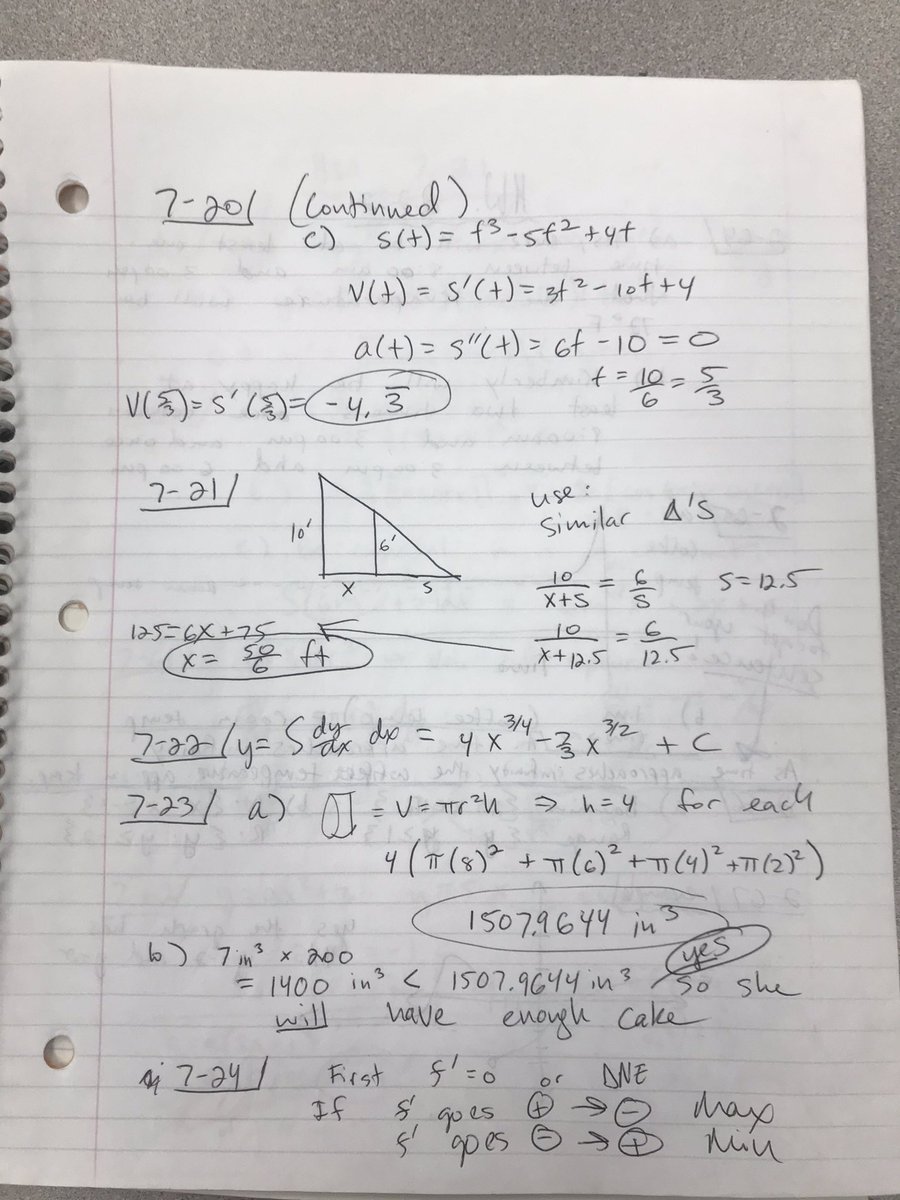 7-20/ (Continued)
c) s(t) = t³ - 5t² + 4t
V(t) = s'(t) = 3t² - 10t + 4
a(t) = s''(t) = 6t - 10 = 0
t = 10/6 = 5/3
V(5/3) = s'(5/3) = -4.3̅
7-21/
use:
similar Δ's
10'
6'
x s
10/(x+s) = 6/s s = 12.5
125 = 6x + 75
10/(x+12.5) = 6/12.5
x = 50/6 ft
7-22/ y = ∫ dy/dx dx = 4x^(3/4) - 2/3 x^(3/2) + C
7-23/ a) = V = πr²h ⇒ h = 4 for each
4(π(8)² + π(6)² + π(4)² + π(2)²)
1507.9644 in³
b) 7in³ × 200
= 1400 in³ < 1507.9644 in³ yes so she
will have enough cake
7-24/ First f' = 0 or DNE
If f' goes ⊕ → ⊖ Max
f' goes ⊖ → ⊕ Min